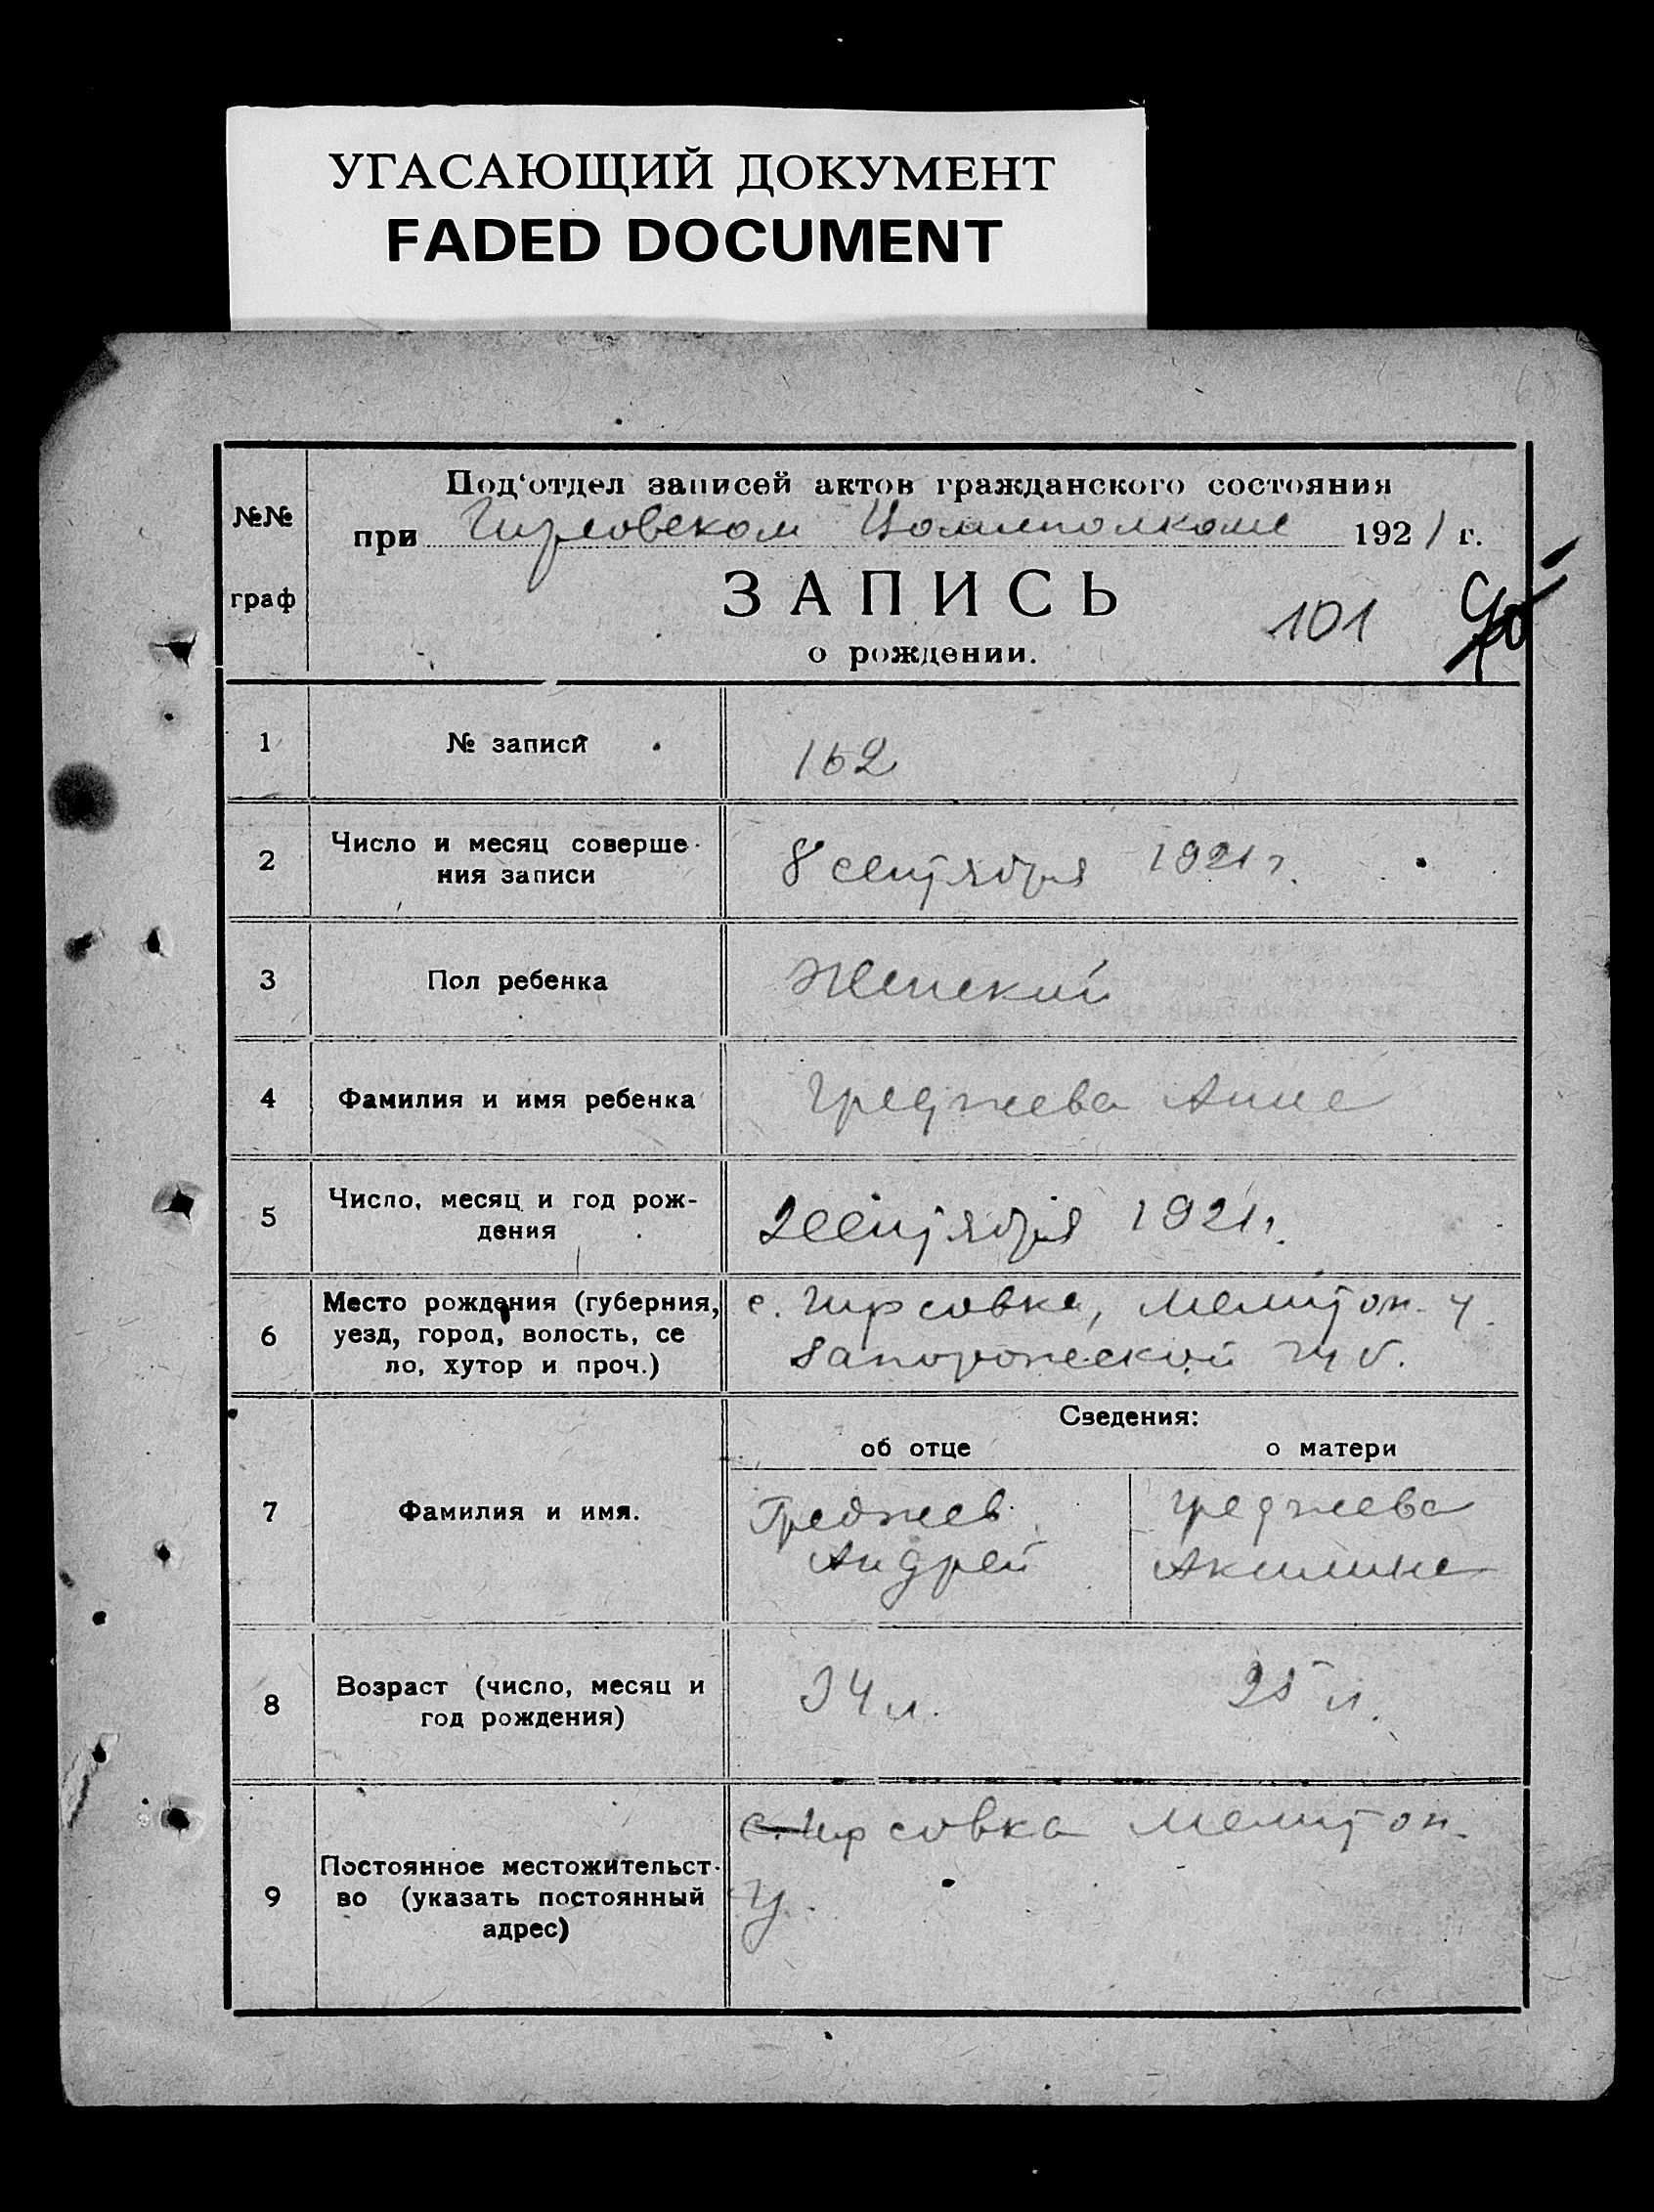 УГАСАЮЩИЙ ДОКУМЕНТ
FADED DOCUMENT
№№
граф
Под‘отдел записей актов гражданского состояния
при Гирсовском Волисполкоме 1921 г.
ЗАПИСЬ
101
о рождении.
1 № записи 162
2 Число и месяц соверше-
ния записи
8 сентября 1921 г.
3 Пол ребенка Женский
4 Фамилия и имя ребенка Греджева Анна
5 Число, месяц и год рож-
дения
2 сентября 1921 г.
6 Место рождения (губерния,
уезд, город, волость, се
ло, хутор и проч.)
с. Гирсовка, Мелитоп. у.
Запорожской губ.
Сведения:
об отце о матери
7 Фамилия и имя.
Греджев Греджева
Андрей Акилина
8 Возраст (число, месяц и
год рождения)
34 л. 25 л.
9 Постоянное местожительст-
во (указать постоянный
адрес)
с. Гирсовка Мелитоп.
у.